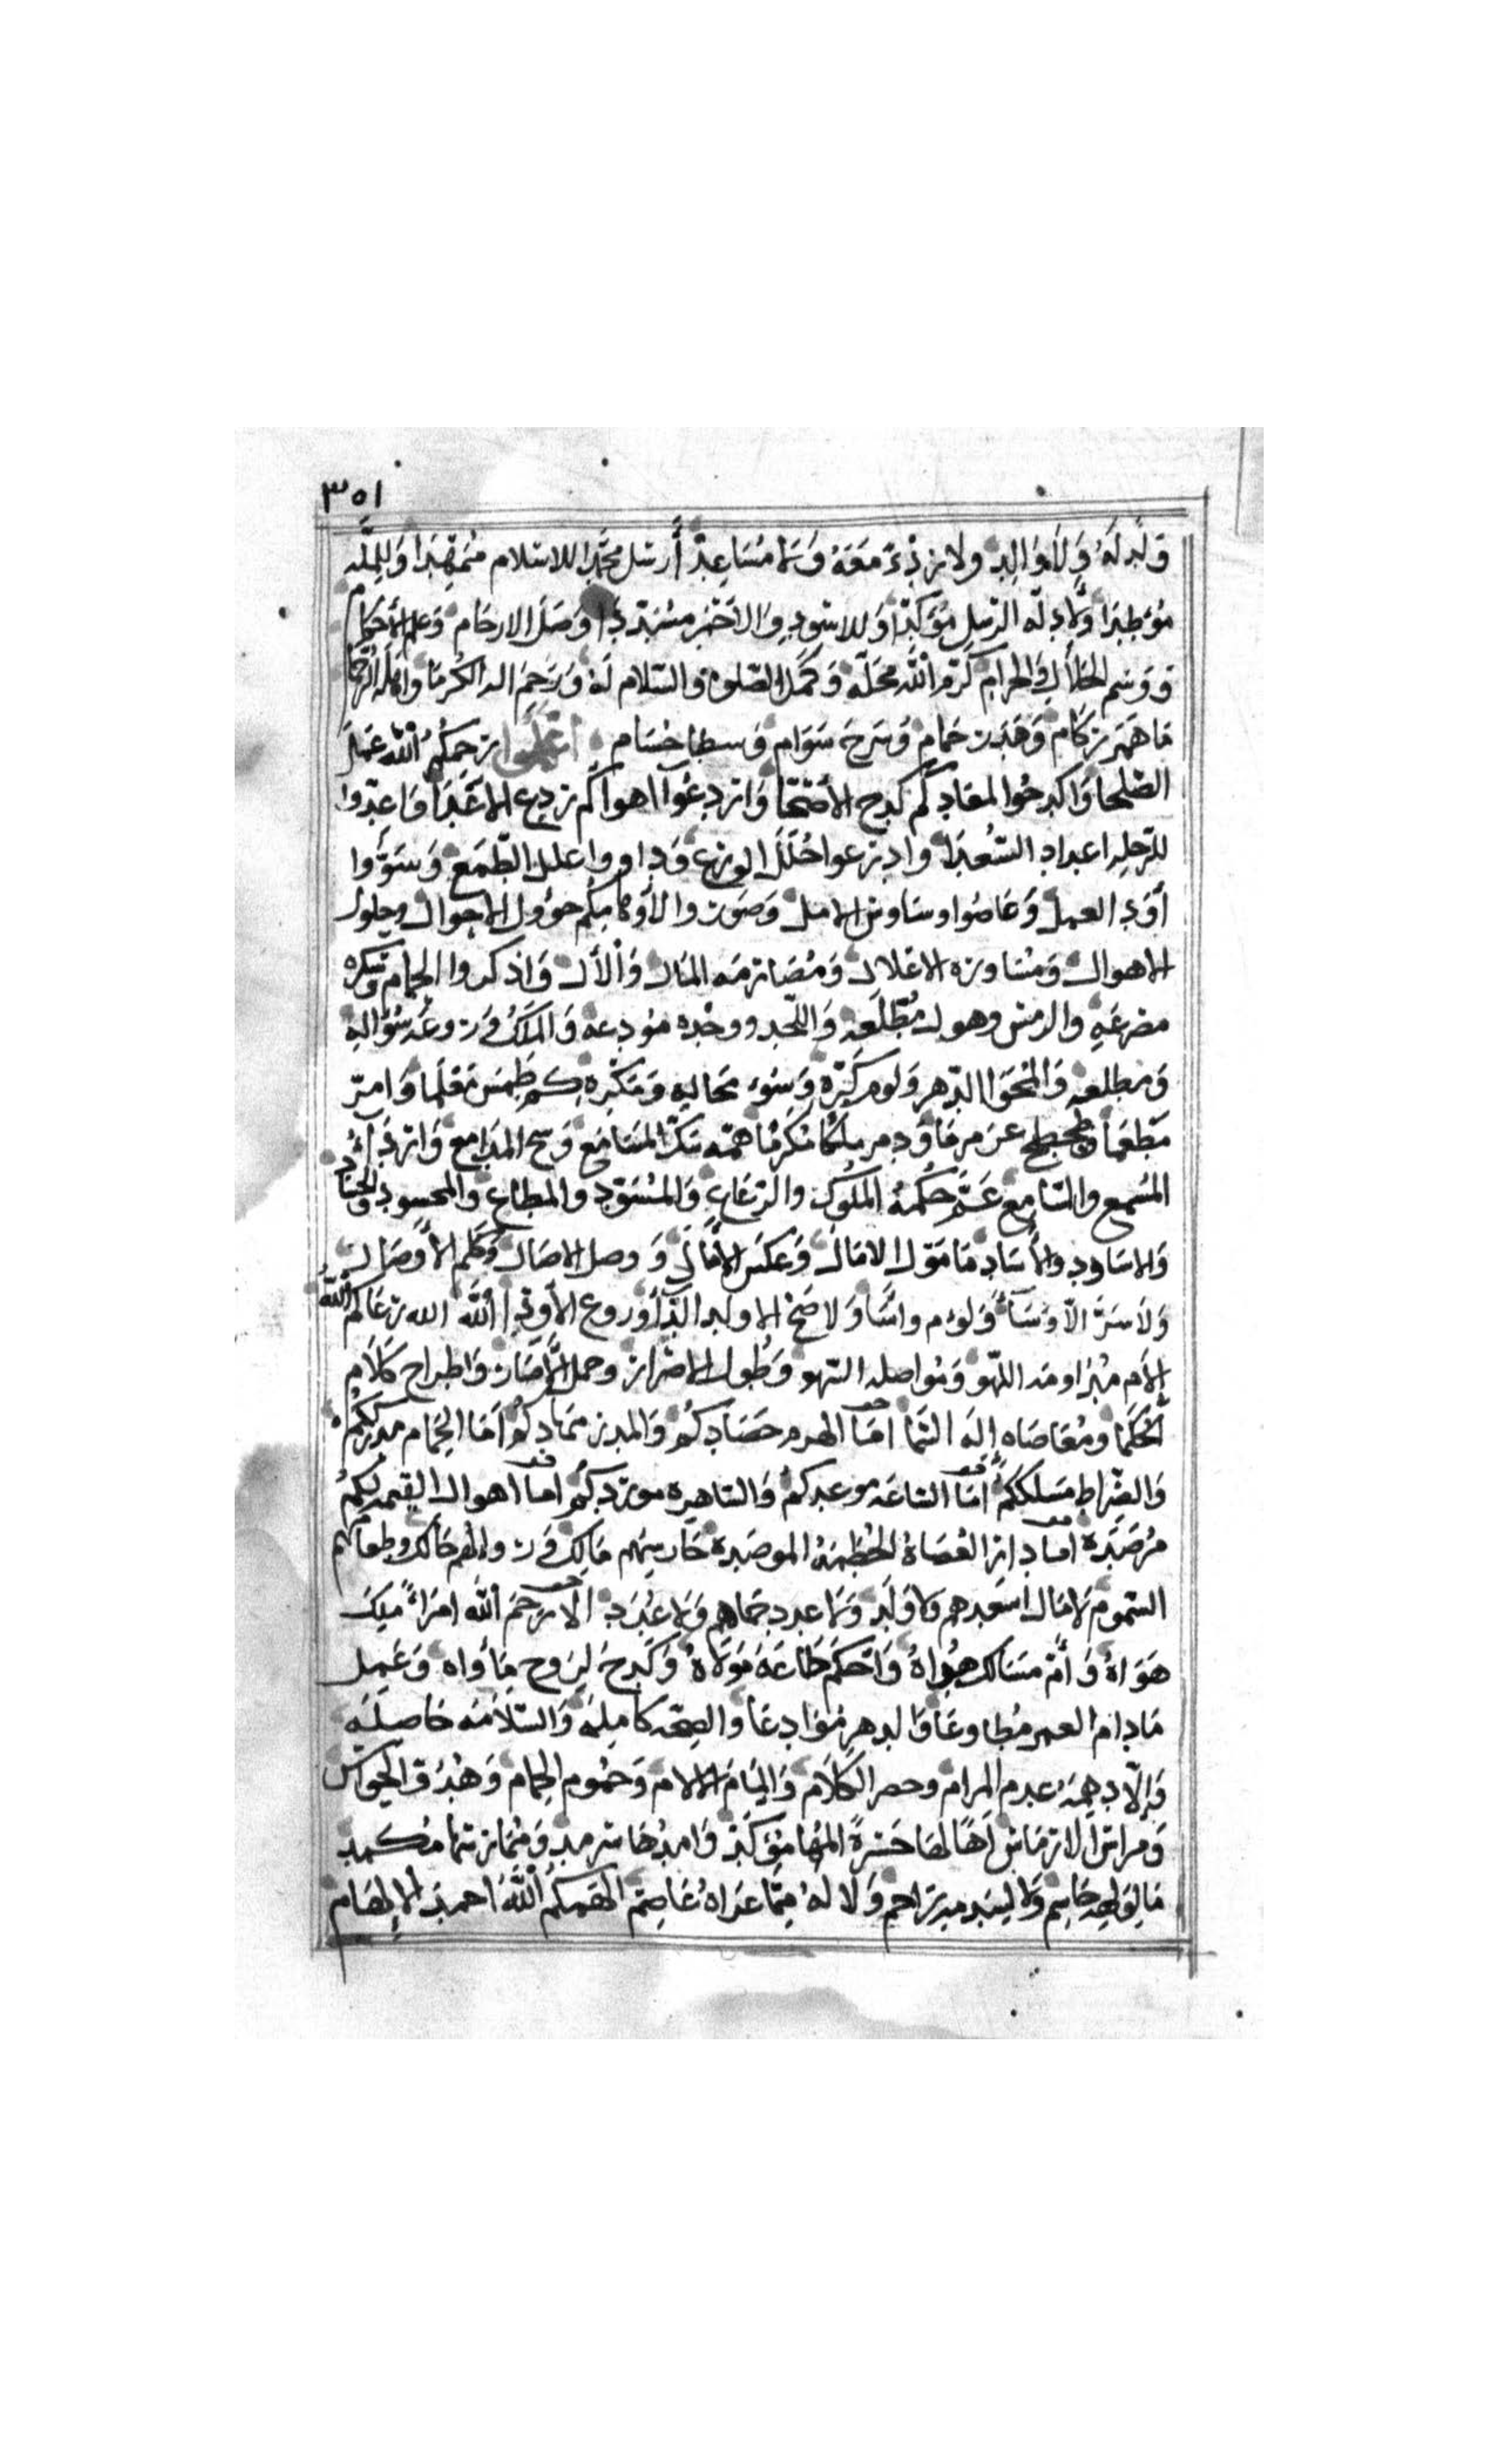 ٣٥١
ولد له ولا والد ولا ردء معه ولا مساعد أرسل محمدا للاسلام ممهدا وللمله
موطدا ولادله الرسل مؤكدا وللاسود والاحمر مسددا وصل الارحام وعلم الأحكام
ووسم الحلال والحرام كرم الله محله وكمل الصلوه والسلام له ورحم اله الكرما واهله الرحما
ما همر ركام وهدر حمام وسرح سوام وسطا حسام اعملوا رحمكم الله عمل
الصلحا واكدحوا لمعادكم كدح الأصحا واردعوا اهواكم ردع الاعدا واعدوا
للرحله اعداد السعدا وادرعوا حلل الورع وداووا علل الطمع وسووا
أود العمل وعاصوا وساوس الامل وصوروا لأوهامكم حؤول الاحوال وحلول
الاهوال ومساوره الاعلال ومصارمه المال والأل واذكروا الحمام وسكره
مصرعه والرمس وهول مطلعه واللحد ووحده مودعه والملك وروعه سؤاله
ومطلعه والمحوا الدهر ولوم كره وسوء محاله ومكره كم طمس معلما وامر
مطعما وطحطح عرمرما ودمر ملكا مكرما همه سك المسامع وسح المدامع وارداء
المسمع والسامع عم حكمه الملوك والرعاع والمسود والمطاع والمحسود والحساد
والاساود والأساد ما مول الا مال وعكس الأمال وما وصل الا صال وكلم الأوصال
ولا سر الا وسأ ولوم واسا ولا اصح الا ولد الدا وروع الأودا الله الله رعاكم الله
إلام مداومه اللهو ومواصله السهو وطول الاصرار وحمل الأصار واطراح كلام
الحكما ومعاصاه إله السما اما الهرم حصادكم والمدر مهادكم أما الحمام مدرككم
والصراط مسلككم أما الساعه موعدكم والساهره موردكم اما اهوال القيمه لكم
مرصده اما دار العصاة الحطمة الموصده حارسهم مالك ورواهم حالك وطعامهم
السموم لا مال اسعدهم ولا ولد ولا عدد حماهم ولا عدد ألا رحم الله امرأ ملك
هواه وأم مسالك هداه واحكم طاعة مولاه وكدح لروح مأواه وعمل
مادام العمر مطاوعا والدهر موادعا والصحه كامله والسلامه حاصله
والا دهمه عدم المرام وحصر الكلام والمام الالام وحموم الحمام وهدو الحواس
ومراس الارماس آها لها حسرة المها مؤكد وامدها سرمد وممارسها مكمد
ما لولهه حاسم ولا لسدمه راحم ولا له مما عراه عاصم الهمكم الله احمد الإلهام